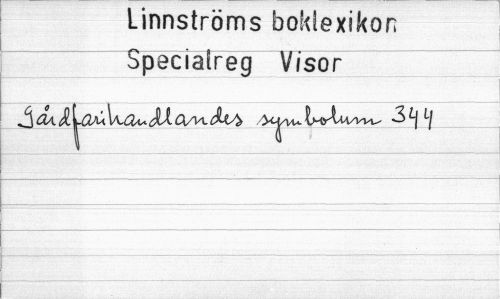 Linnströms boklexikon
Specialreg Visor
Gårdfarihandlandes symbolum 344